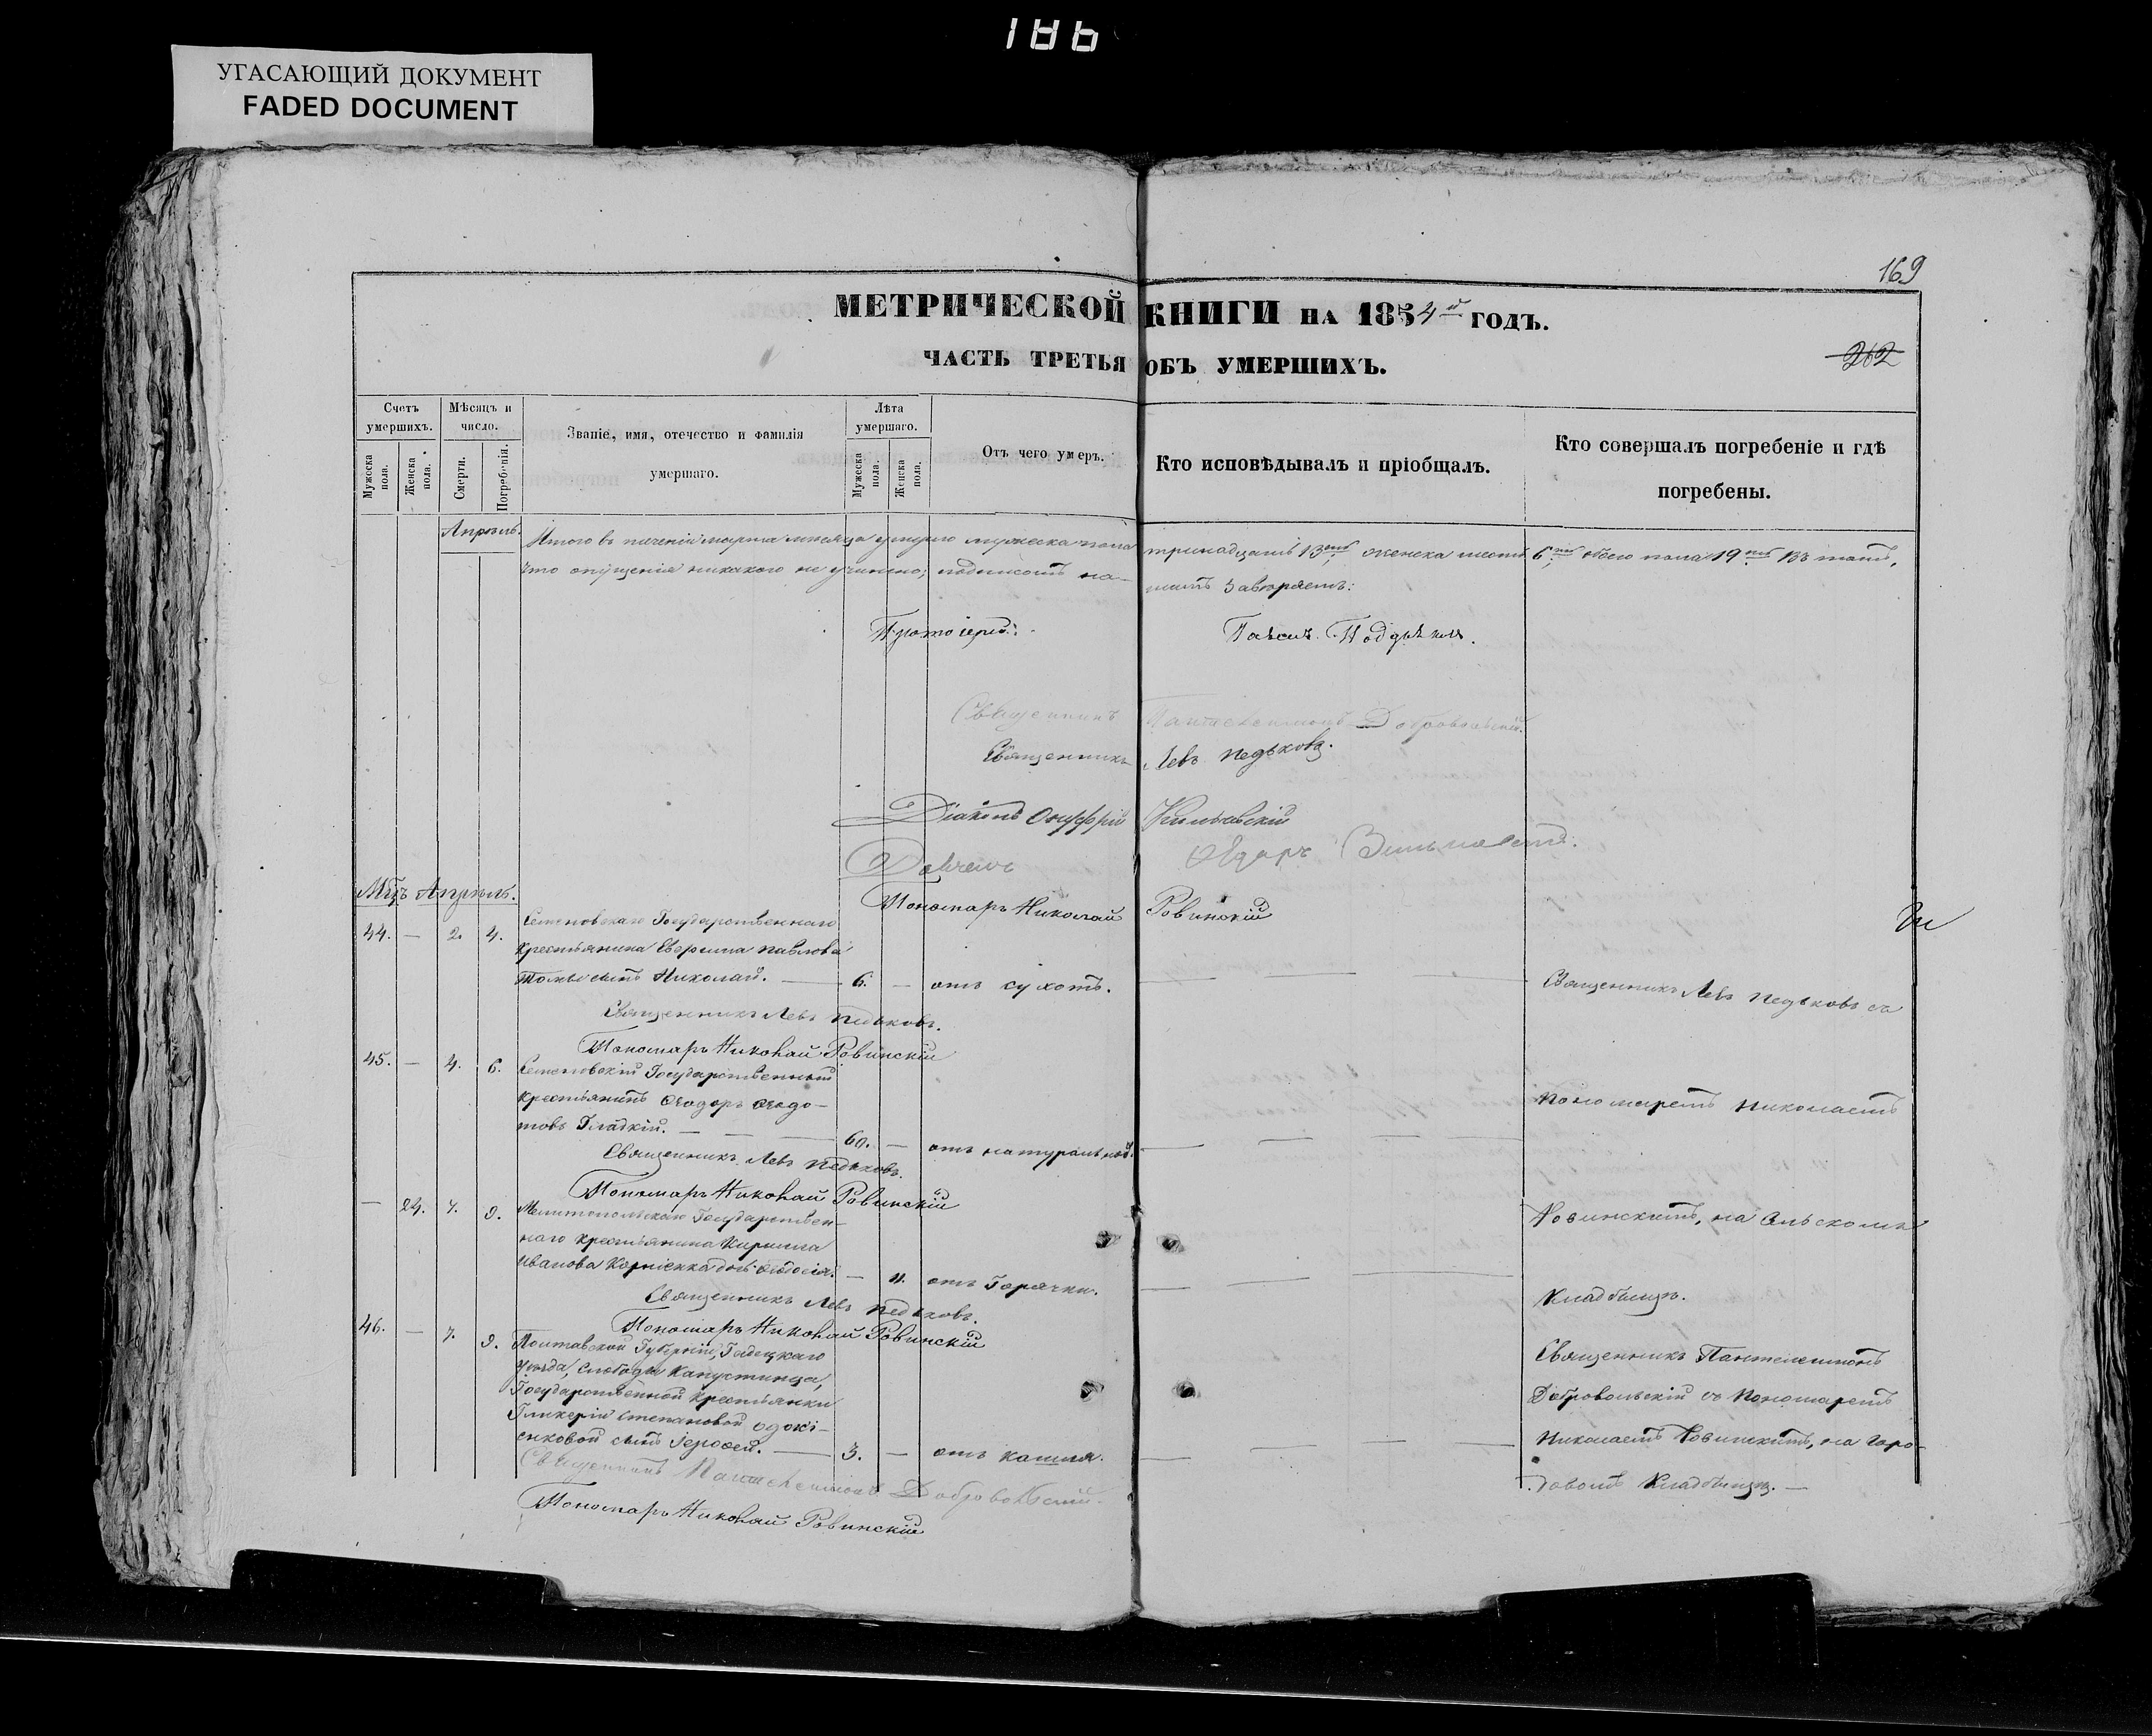 186
УГАСАЮЩИЙ ДОКУМЕНТ
FADED DOCUMENT
169
МЕТРИЧЕСКОЙ КНИГИ НА 1854й ГОДЪ.
ЧАСТЬ ТРЕТЬЯ ОБЪ УМЕРШИХЪ.
262
Счетъ умершихъ.
Мужеска пола.
Женска пола.
Мѣсяцъ и число.
Смерти.
Погребенія.
Званіе, имя, отечество и фамилія
умершаго.
Лѣта умершаго.
Мужеска пола.
Женска пола.
Отъ чего умеръ.
Кто исповѣдывалъ и пріобщалъ.
Кто совершалъ погребеніе и гдѣ
погребены.
Апрѣль.
Итого въ теченіи марта мѣсяца умерло мужеска пола тринадцать 13ть женска шесть 6ть обоего пола 19ть Въ томъ,
что опущенія никакого не учинено, подписомъ нашимъ завѣряемъ:
Протоіерей
Священникъ Пантелеимонъ Добровольскій.
Священникъ Левъ Педьковъ.
Діаконъ Онуфрій
Пономарь Николай Ровинскій
Мцъ Апрѣль.
44. — 2. 4. Семеновскаго Государственнаго
крестьянина Павлова
сынъ Николай. — 6. — отъ сухотъ.
Священникъ Левъ Педьковъ съ
Священникъ Левъ Педьковъ.
Пономарь Николай Ровинскій
45. — 4. 6. Семеновскій Государственный
крестьянинъ Ѳеодоръ Ѳедо-
товъ Гладкій. — 60. — отъ натуральной.
Пономаремъ Николаемъ
Священникъ Левъ Педьковъ.
Пономарь Николай Ровинскій
— 29. 7. 9. Мелитопольскаго Государствен-
наго крестьянина Кирилла
Иванова Корніенка дочь Ѳеодосія. — отъ Горячки.
Ровинскимъ, на Сельскомъ
Кладбищѣ.
Священникъ Левъ Педьковъ.
Пономарь Николай Ровинскій
46. — 7. 9. Полтавской Губерніи, Гадяцкаго
уѣзда, слободы Капустинца,
Государственной крестьянки
Гликеріи Степановой
сынъ Іероѳей. — 3. — отъ кашля.
Священникъ Пантелеимонъ
Добровольскій съ Пономаремъ
Николаемъ Ровинскимъ, на Горо-
довомъ Кладбищѣ. —
Священникъ Пантелеимонъ Добровольскій.
Пономарь Николай Ровинскій